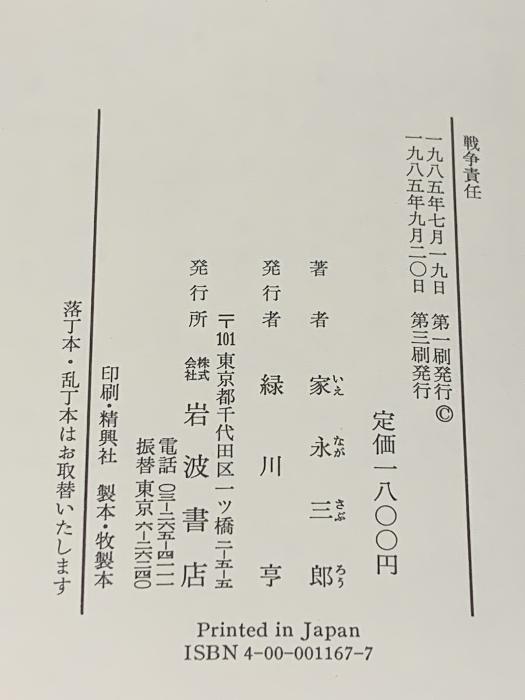 戦争責任
一九八五年七月一九日 第一刷発行©
一九八五年九月二〇日 第三刷発行
定価一八〇〇円
著者 家永三郎
いえ なが さぶ ろう
発行者 緑川亨
〒101 東京都千代田区一ツ橋二−五−五
発行所 株式会社 岩波書店
電話 〇三−二六五−四一一一
振替 東京 六−二六二四〇
印刷・精興社 製本・牧製本
落丁本・乱丁本はお取替いたします
Printed in Japan
ISBN 4-00-001167-7